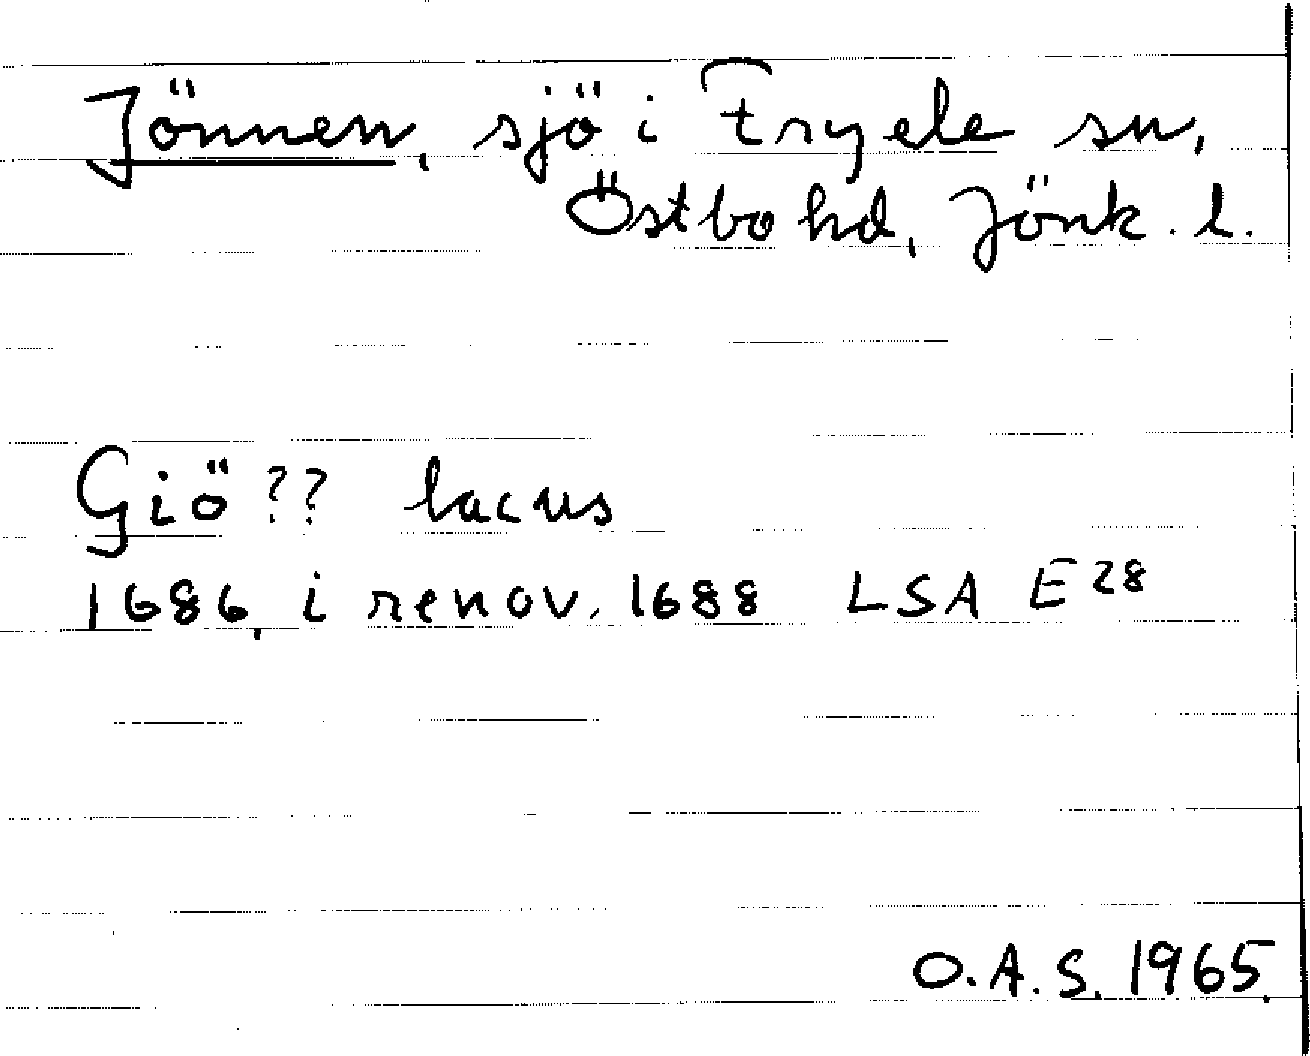 Jönnen, sjö i Fryele sn,
Östbo hd, Jönk. l.
Giö?? lacus
1686, i renov. 1688 LSA E 28
O.A.S. 1965.